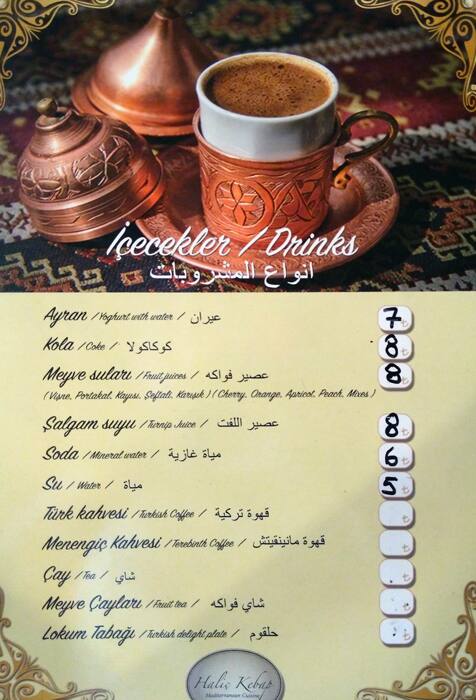 İçecekler / Drinks
انواع المشروبات
Ayran / Yoghurt with water / عيران 7 ₺
Kola / Coke / كوكاكولا 8 ₺
Meyve suları / Fruit juices / عصير فواكه 8 ₺
( Vişne, Portakal, Kayısı, Şeftali, Karışık ) ( Cherry, Orange, Apricot, Peach, Mixes )
Şalgam suyu / Turnip Juice / عصير اللفت 8 ₺
Soda / Mineral water / مياة غازية 6 ₺
Su / Water / مياة 5 ₺
Türk kahvesi / Turkish Coffee / قهوة تركية ₺
Menengiç Kahvesi / Terebinth Coffee / قهوة مانينقيتش ₺
Çay / Tea / شاي ₺
Meyve Çayları / Fruit tea / شاي فواكه ₺
Lokum Tabağı / Turkish delight plate / حلقوم ₺
Haliç Kebap
Mediterranean Cuisine